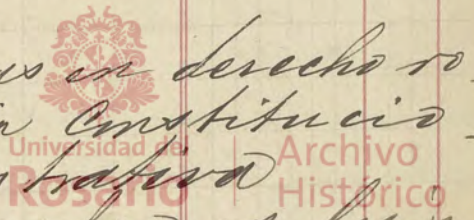 us en derecho ro
n Constitucio-
trativa
Universidad del
Rosario
Archivo
Histórico